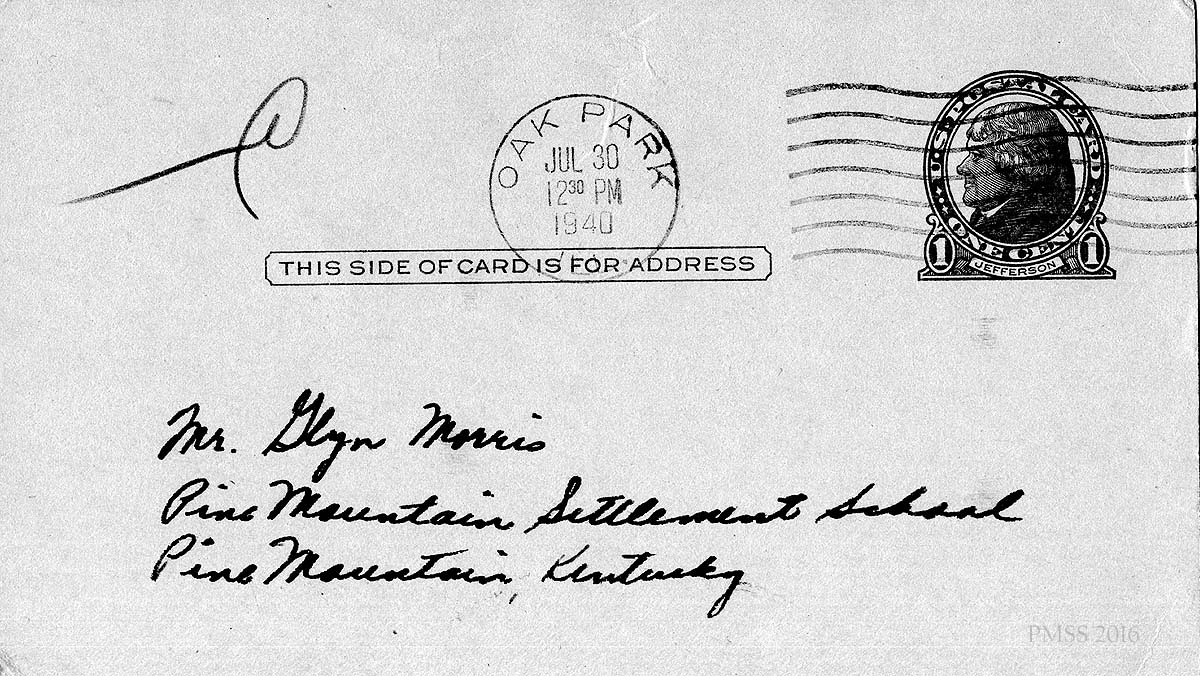 OAK PARK
JUL 30
12 30 PM
1940
U.S. POSTAL CARD
ONE CENT
1 JEFFERSON 1
THIS SIDE OF CARD IS FOR ADDRESS
Mr. Glyn Morris
Pine Mountain Settlement School
Pine Mountain, Kentucky
PMSS 2016